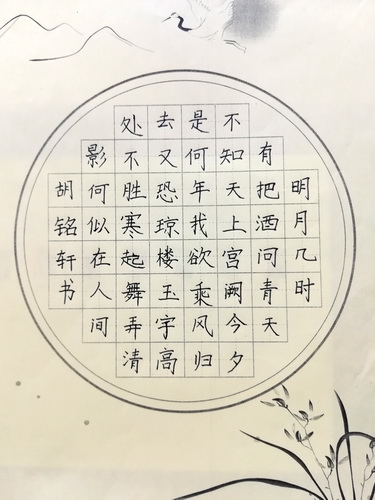 明月几时
有把酒问青天
不知天上宫阙今夕
是何年我欲乘风归
去又恐琼楼玉宇高
处不胜寒起舞弄清
影何似在人间
胡铭轩书